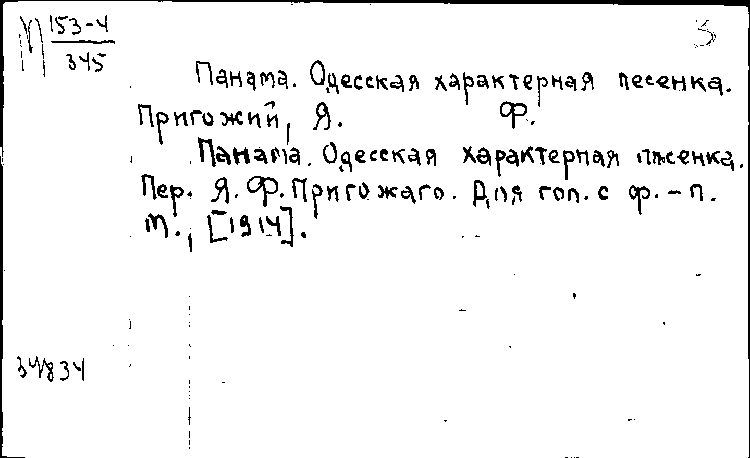 П 153-4
345
3
Панама. Одесская характерная песенка.
Пригожий, Я. Ф.
Панама. Одесская характерная пѣсенка.
Пер. Я. Ф. Пригожаго. Для гол. с ф.-п.
М., [1914].
34834